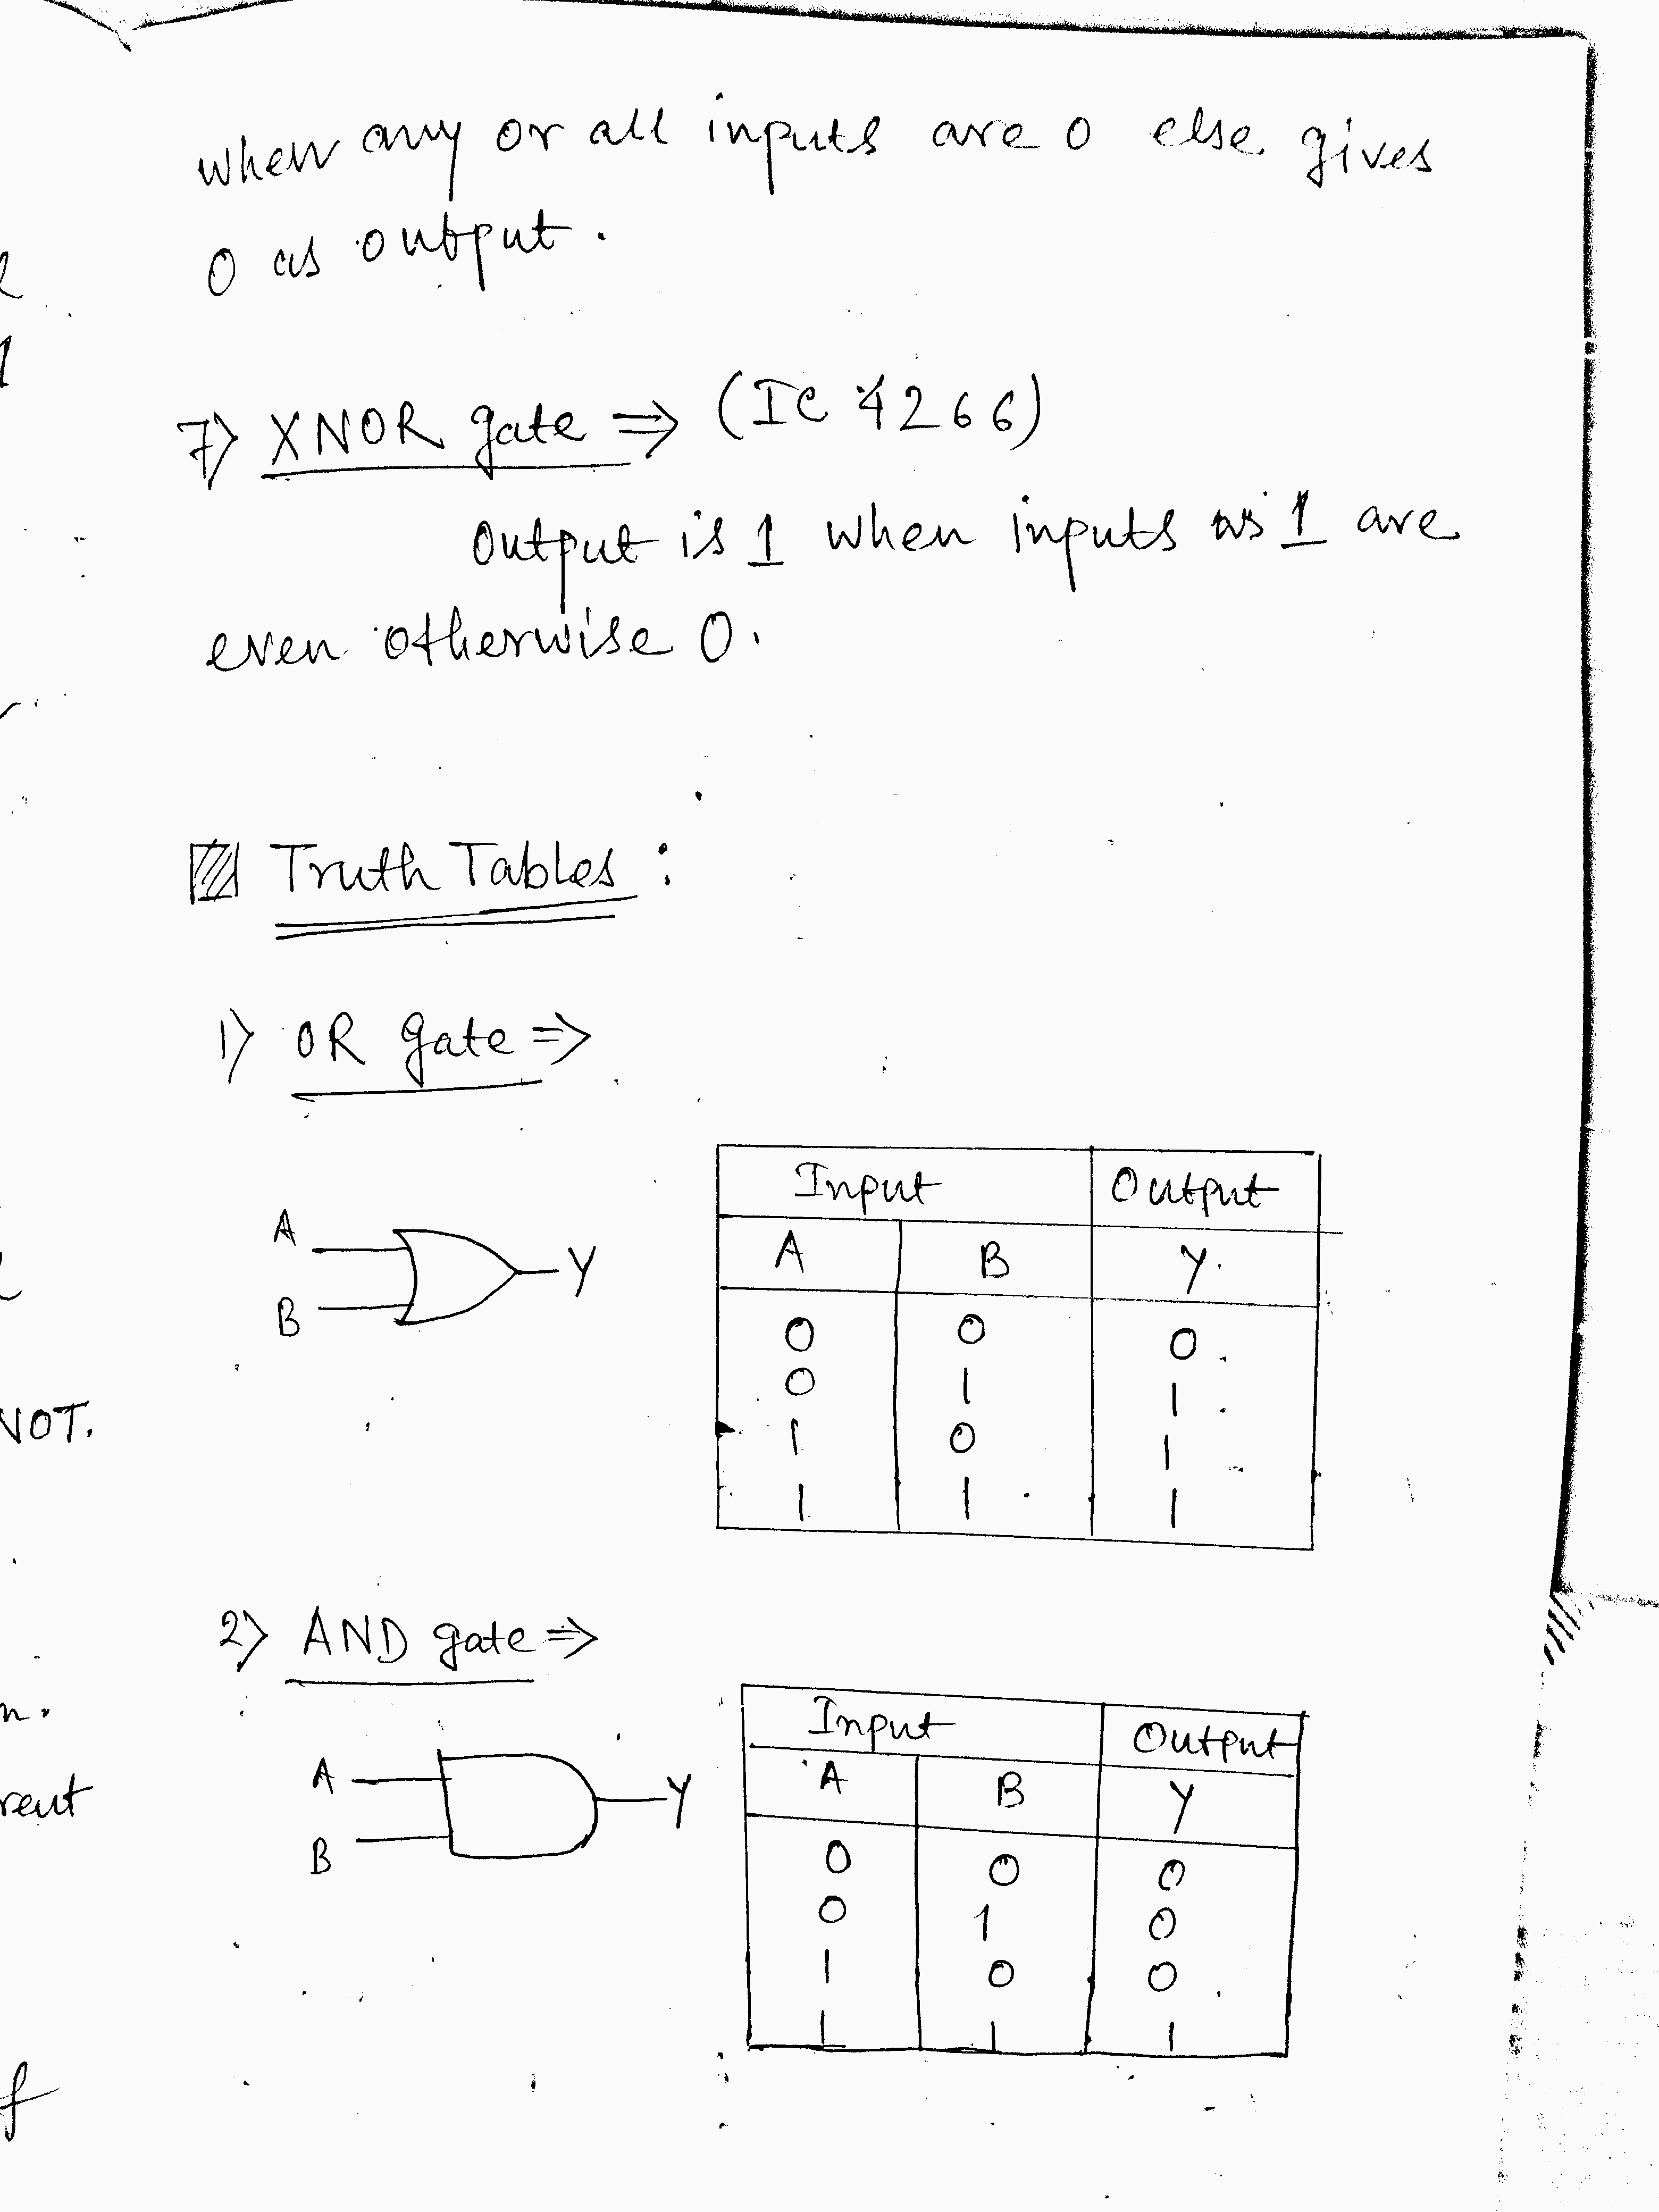 when any or all inputs are 0 else gives
0 as output.
7) XNOR gate ⇒ (IC 4266)
Output is 1 when inputs as 1 are
even otherwise 0.
Truth Tables :
1) OR gate ⇒
Input Output
A B Y
0 0 0
0 1 1
1 0 1
1 1 1
A
B
Y
2) AND gate ⇒
Input Output
A B Y
0 0 0
0 1 0
1 0 0
1 1 1
A
B
Y
NOT.